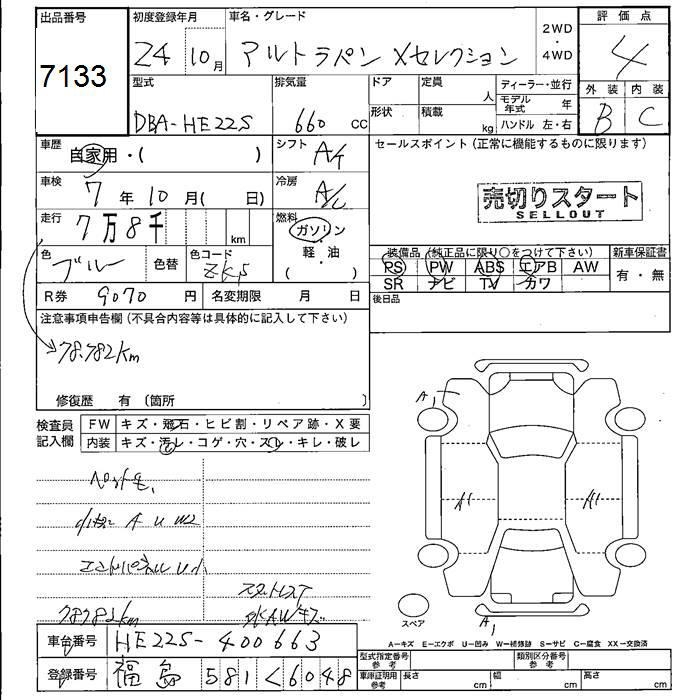 出品番号
7133
初度登録年月
24 10月
車名・グレード
アルトラパン Xセレクション
2WD
・
4WD
評価点
4
型式
DBA-HE22S
排気量
660 cc
ドア
形状
定員
人
積載
kg
ディーラー・並行
モデル年式 年
ハンドル 左・右
外装 内装
B C
車歴
自家用・( )
シフト
A/T
セールスポイント (正常に機能するものに限ります)
車検
7年10月( 日)
冷房
A/C
売切りスタート
SELLOUT
走行
7万8千 km
燃料
ガソリン
・
軽・油
( )
色
ブルー
色替
色コード
装備品 (純正品に限り○をつけて下さい)
PS PW ABS エアB AW
SR ナビ TV カワ
新車保証書
有・無
R券 9070円
名変期限 月 日
後日品
注意事項申告欄 (不具合内容等は具体的に記入して下さい)
78.782km
修復歴 有 〔箇所 〕
検査員
記入欄
FW キズ・飛石・ヒビ割・リペア跡・X要
内装 キズ・汚レ・コゲ・穴・スレ・キレ・破レ
A1
A1
A1
A1
スペア
78782km
A=キズ E=エクボ U=凹み W=補修跡 S=サビ C=腐食 XX=交換済
車台番号 HE22S-400663
型式指定番号
参考
類別区分番号
参考
登録番号 福島 581 く 6048
車庫証明用
参考
長さ cm
幅 cm
高さ cm